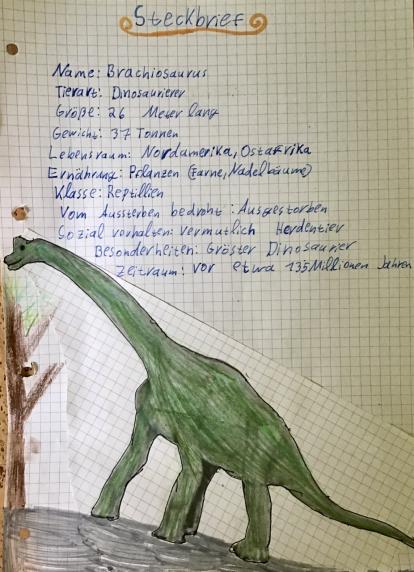 Steckbrief
Name: Brachiosaurus
Tierart: Dinosaurierer
Größe: 26 Meter lang
Gewicht: 37 Tonnen
Lebensraum: Nordamerika, Ostafrika
Ernährung: Pflanzen (Farne, Nadelbäume)
Klasse: Reptilien
Vom Aussterben bedroht: Ausgestorben
Sozial verhalten: Vermutlich Herdentier
Besonderheiten: Gröster Dinosaurier
Zeitraum: vor etwa 135 Millionen Jahren